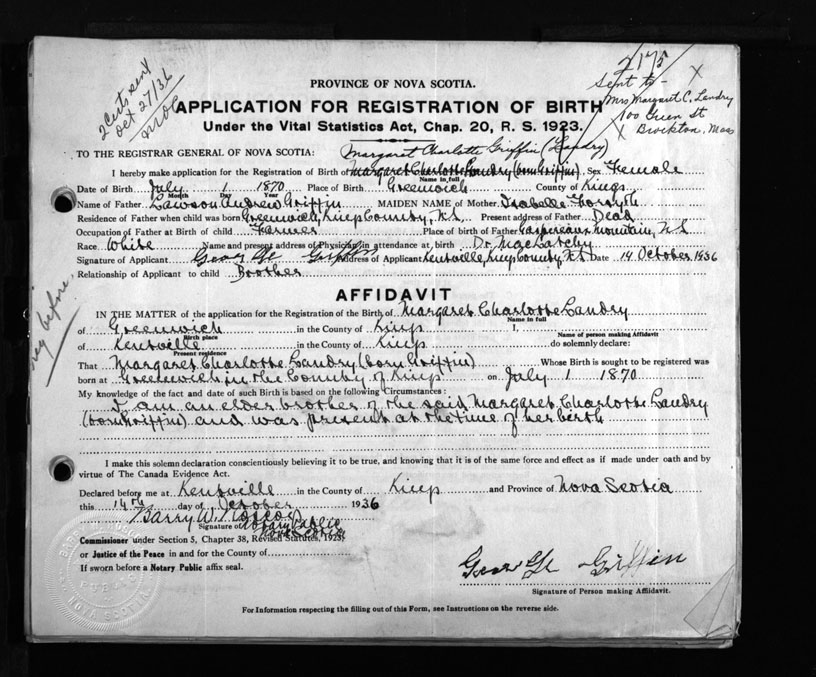 2175
2 Certs sent
Oct 27/36
Sent to -
Mrs Margaret C. Landry
100 Green St
Brockton, Mass
PROVINCE OF NOVA SCOTIA.
APPLICATION FOR REGISTRATION OF BIRTH
Under the Vital Statistics Act, Chap. 20, R. S. 1923.
TO THE REGISTRAR GENERAL OF NOVA SCOTIA: Margaret Charlotte Griffin (Landry)
I hereby make application for the Registration of Birth of Margaret Charlotte Landry (born Griffin), Sex Female
Name in full
Date of Birth July 1 1870 Place of Birth Greenwich County of Kings
Month Day Year
Name of Father Lawson Andrew Griffin MAIDEN NAME of Mother Isabelle Forsyth
Residence of Father when child was born Greenwich, Kings County, N.S. Present address of Father Dead
Occupation of Father at Birth of child Farmer Place of birth of Father Gaspereaux Mountain, N.S.
Race White Name and present address of Physician in attendance at birth Dr. MacLatchy
Signature of Applicant George Griffin Address of Applicant Kentville, Kings County, N.S. Date 14 October 1936
Relationship of Applicant to child Brother
reg before
AFFIDAVIT
IN THE MATTER of the application for the Registration of the Birth of Margaret Charlotte Landry
Name in full
of Greenwich in the County of Kings I,
Birth place Name of person making Affidavit
of Kentville in the County of Kings do solemnly declare:
Present residence
That Margaret Charlotte Landry (born Griffin) Whose Birth is sought to be registered was
born at Greenwich, in the County of Kings on July 1 1870
My knowledge of the fact and date of such Birth is based on the following Circumstances:
I am an elder brother of the said Margaret Charlotte Landry
(born Griffin) and was present at the time of her birth
I make this solemn declaration conscientiously believing it to be true, and knowing that it is of the same force and effect as if made under oath and by
virtue of The Canada Evidence Act.
Declared before me at Kentville in the County of Kings and Province of Nova Scotia
this 14th day of October 1936
Barry W. Roscoe
Signature of Notary Public
Nova Scotia
Commissioner under Section 5, Chapter 38, Revised Statutes, 1923,
or Justice of the Peace in and for the County of
If sworn before a Notary Public affix seal.
George Griffin
Signature of Person making Affidavit.
For Information respecting the filling out of this Form, see Instructions on the reverse side.
PUBLIC
NOVA SCOTIA